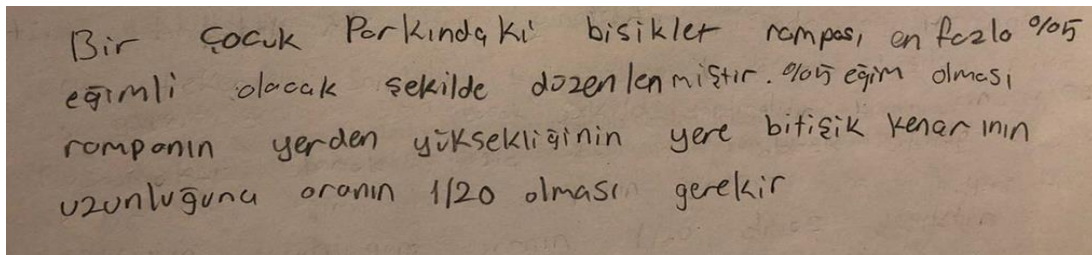 Bir çocuk Parkındaki bisiklet rampası en fazla %5
eğimli olacak şekilde düzenlenmiştir. %5 eğim olması
rampanın yerden yüksekliğinin yere bitişik kenarının
uzunluğuna oranın 1/20 olması gerekir